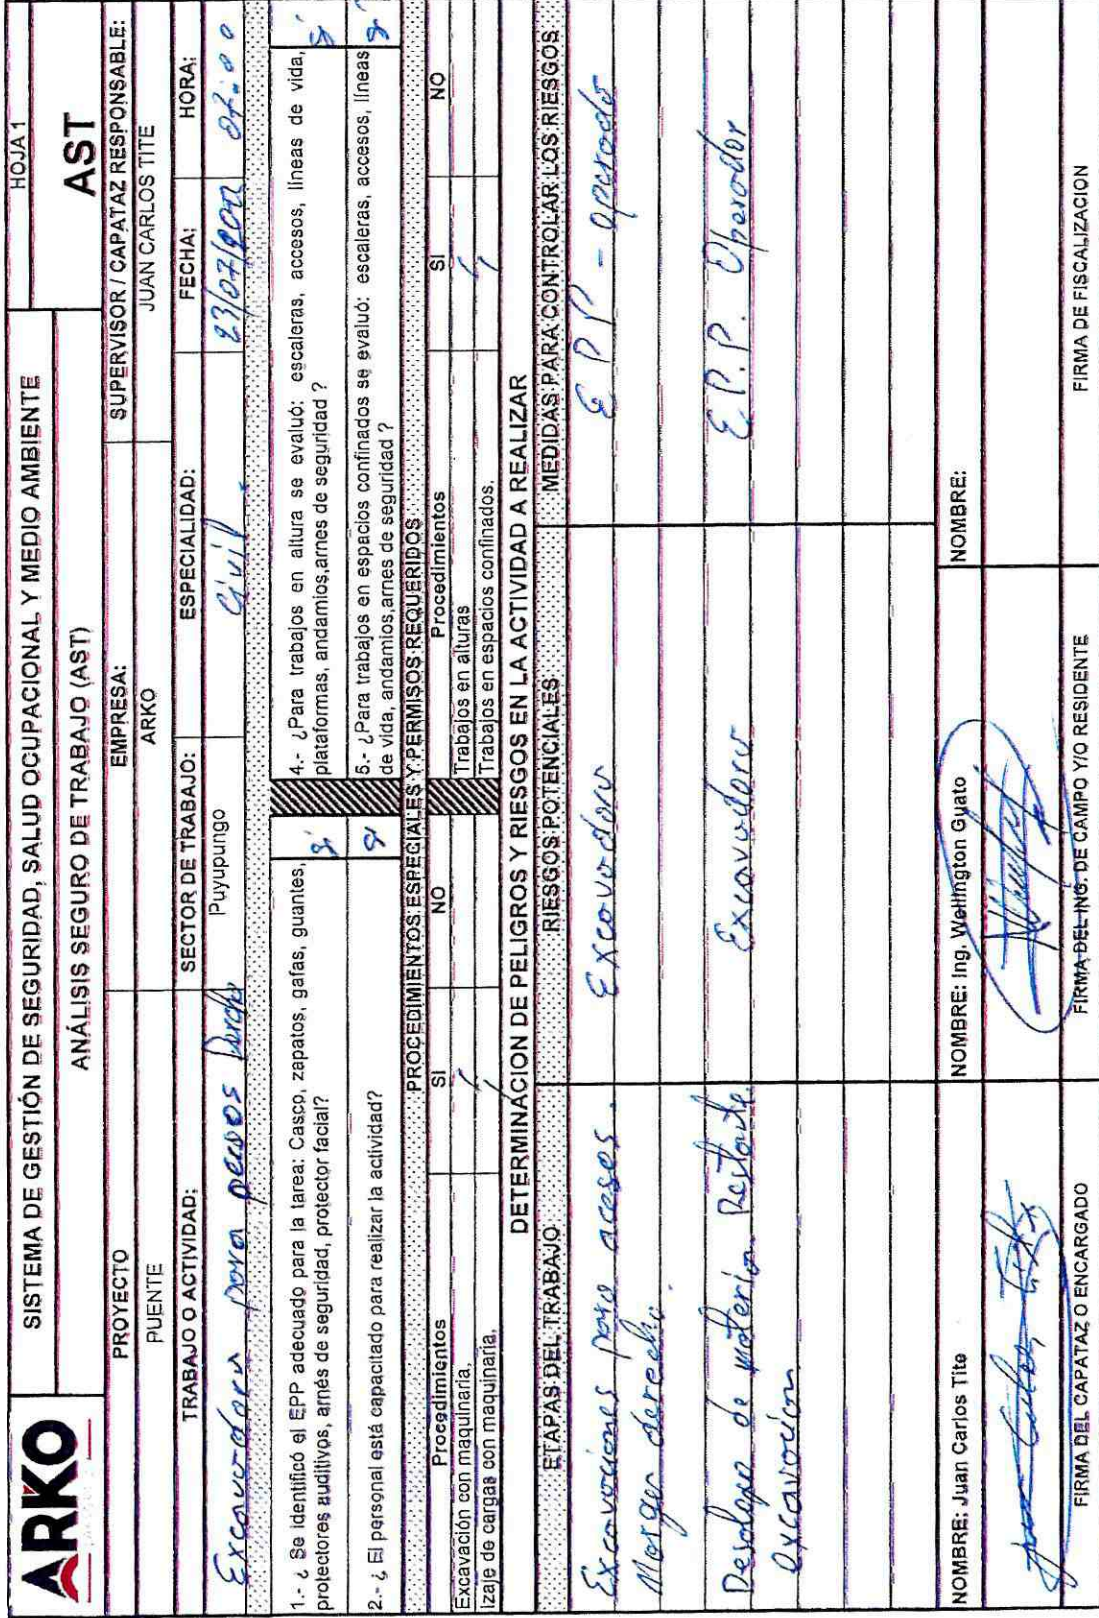 ARKO
SISTEMA DE GESTIÓN DE SEGURIDAD, SALUD OCUPACIONAL Y MEDIO AMBIENTE
HOJA 1
ANÁLISIS SEGURO DE TRABAJO (AST)
AST
PROYECTO
EMPRESA:
SUPERVISOR / CAPATAZ RESPONSABLE:
PUENTE
ARKO
JUAN CARLOS TITE
TRABAJO O ACTIVIDAD:
SECTOR DE TRABAJO:
ESPECIALIDAD:
FECHA:
HORA:
Excavadora para
Puyupungo
Civil.
07:00
1.- ¿ Se identificó el EPP adecuado para la tarea: Casco, zapatos, gafas, guantes, protectores auditivos, arnés de seguridad, protector facial?
si
4.- ¿Para trabajos en altura se evaluó: escaleras, accesos, líneas de vida, plataformas, andamios,arnes de seguridad ?
si
2.- ¿ El personal está capacitado para realizar la actividad?
si
5.- ¿Para trabajos en espacios confinados se evaluó: escaleras, accesos, líneas de vida, andamios,arnes de seguridad ?
si
PROCEDIMIENTOS ESPECIALES Y PERMISOS REQUERIDOS
Procedimientos
SI
NO
Procedimientos
SI
NO
Excavación con maquinaria.
Trabajos en alturas
Izaje de cargas con maquinaria.
Trabajos en espacios confinados.
DETERMINACION DE PELIGROS Y RIESGOS EN LA ACTIVIDAD A REALIZAR
ETAPAS DEL TRABAJO
RIESGOS POTENCIALES
MEDIDAS PARA CONTROLAR LOS RIESGOS
Excavaciones para acesos.
Excavadora
E P P - operado
Margen derecho.
Desalojo de materia Restante
Excavadora
E.P.P. Operador
excavacion
NOMBRE: Juan Carlos Tite
NOMBRE: Ing. Wellington Guato
NOMBRE:
FIRMA DEL CAPATAZ O ENCARGADO
FIRMA DEL ING. DE CAMPO Y/O RESIDENTE
FIRMA DE FISCALIZACION